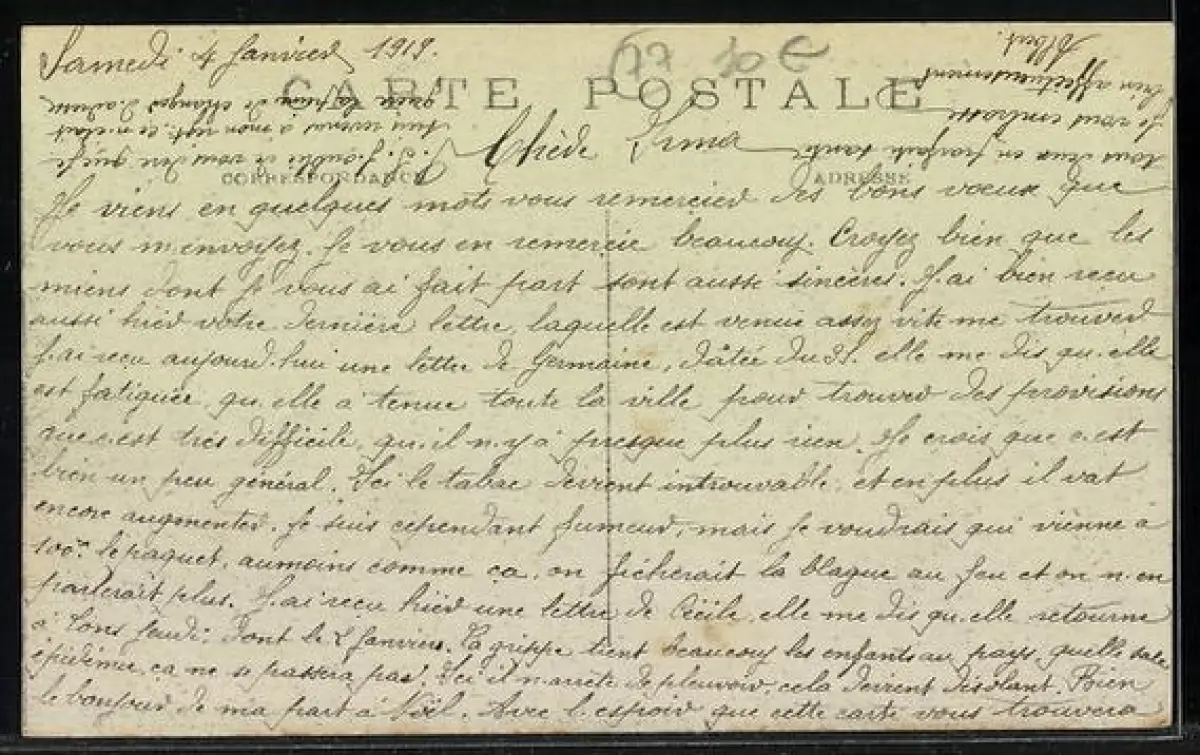 Samedi 4 Janvier 1919.
CARTE POSTALE
CORRESPONDANCE
ADRESSE
Chède Irma
Je viens en quelques mots vous remercier des bons vœux que
vous m'envoyez. Je vous en remercie beaucoup. Croyez bien que les
miens dont je vous ai fait part sont aussi sincères. J'ai bien reçu
aussi hier votre dernière lettre, laquelle est venue assez vite me trouver
J'ai reçu aujourd'hui une lettre de Germaine, datée du elle me dis qu'elle
est fatiguée, qu'elle à tenue toute la ville pour trouver des provisions
que c'est très difficile, qu'il n'y à presque plus rien. Je crois que c'est
bien un peu général. Ici le tabac devient introuvable, et en plus il vat
encore augmenter. Je suis cependant fumeur, mais je voudrais qui vienne à
100 le paquet, aumoins comme ça, on ficherait la blague au feu et on n'en
parlerait plus. J'ai reçu hier une lettre de Cécile, elle me dis qu'elle retourne
à Lons Jeudi. dont le 2 Janvier. La grippe tient beaucoup les enfants au pays, quelle sale
épidémie, ça ne se passera pas. Ici il n'arrête de pleuvoir, cela devient désolant. Bien
le bonjour de ma part à Noël. Avec l'espoir que cette carte vous trouvera
tous deux en parfaite santé
Je vous embrasse
bien affectueusement
Albert.
P.S. J'oublie de vous dire que je
suis revenu à mon ce n'était
la peine de changer d'adresse